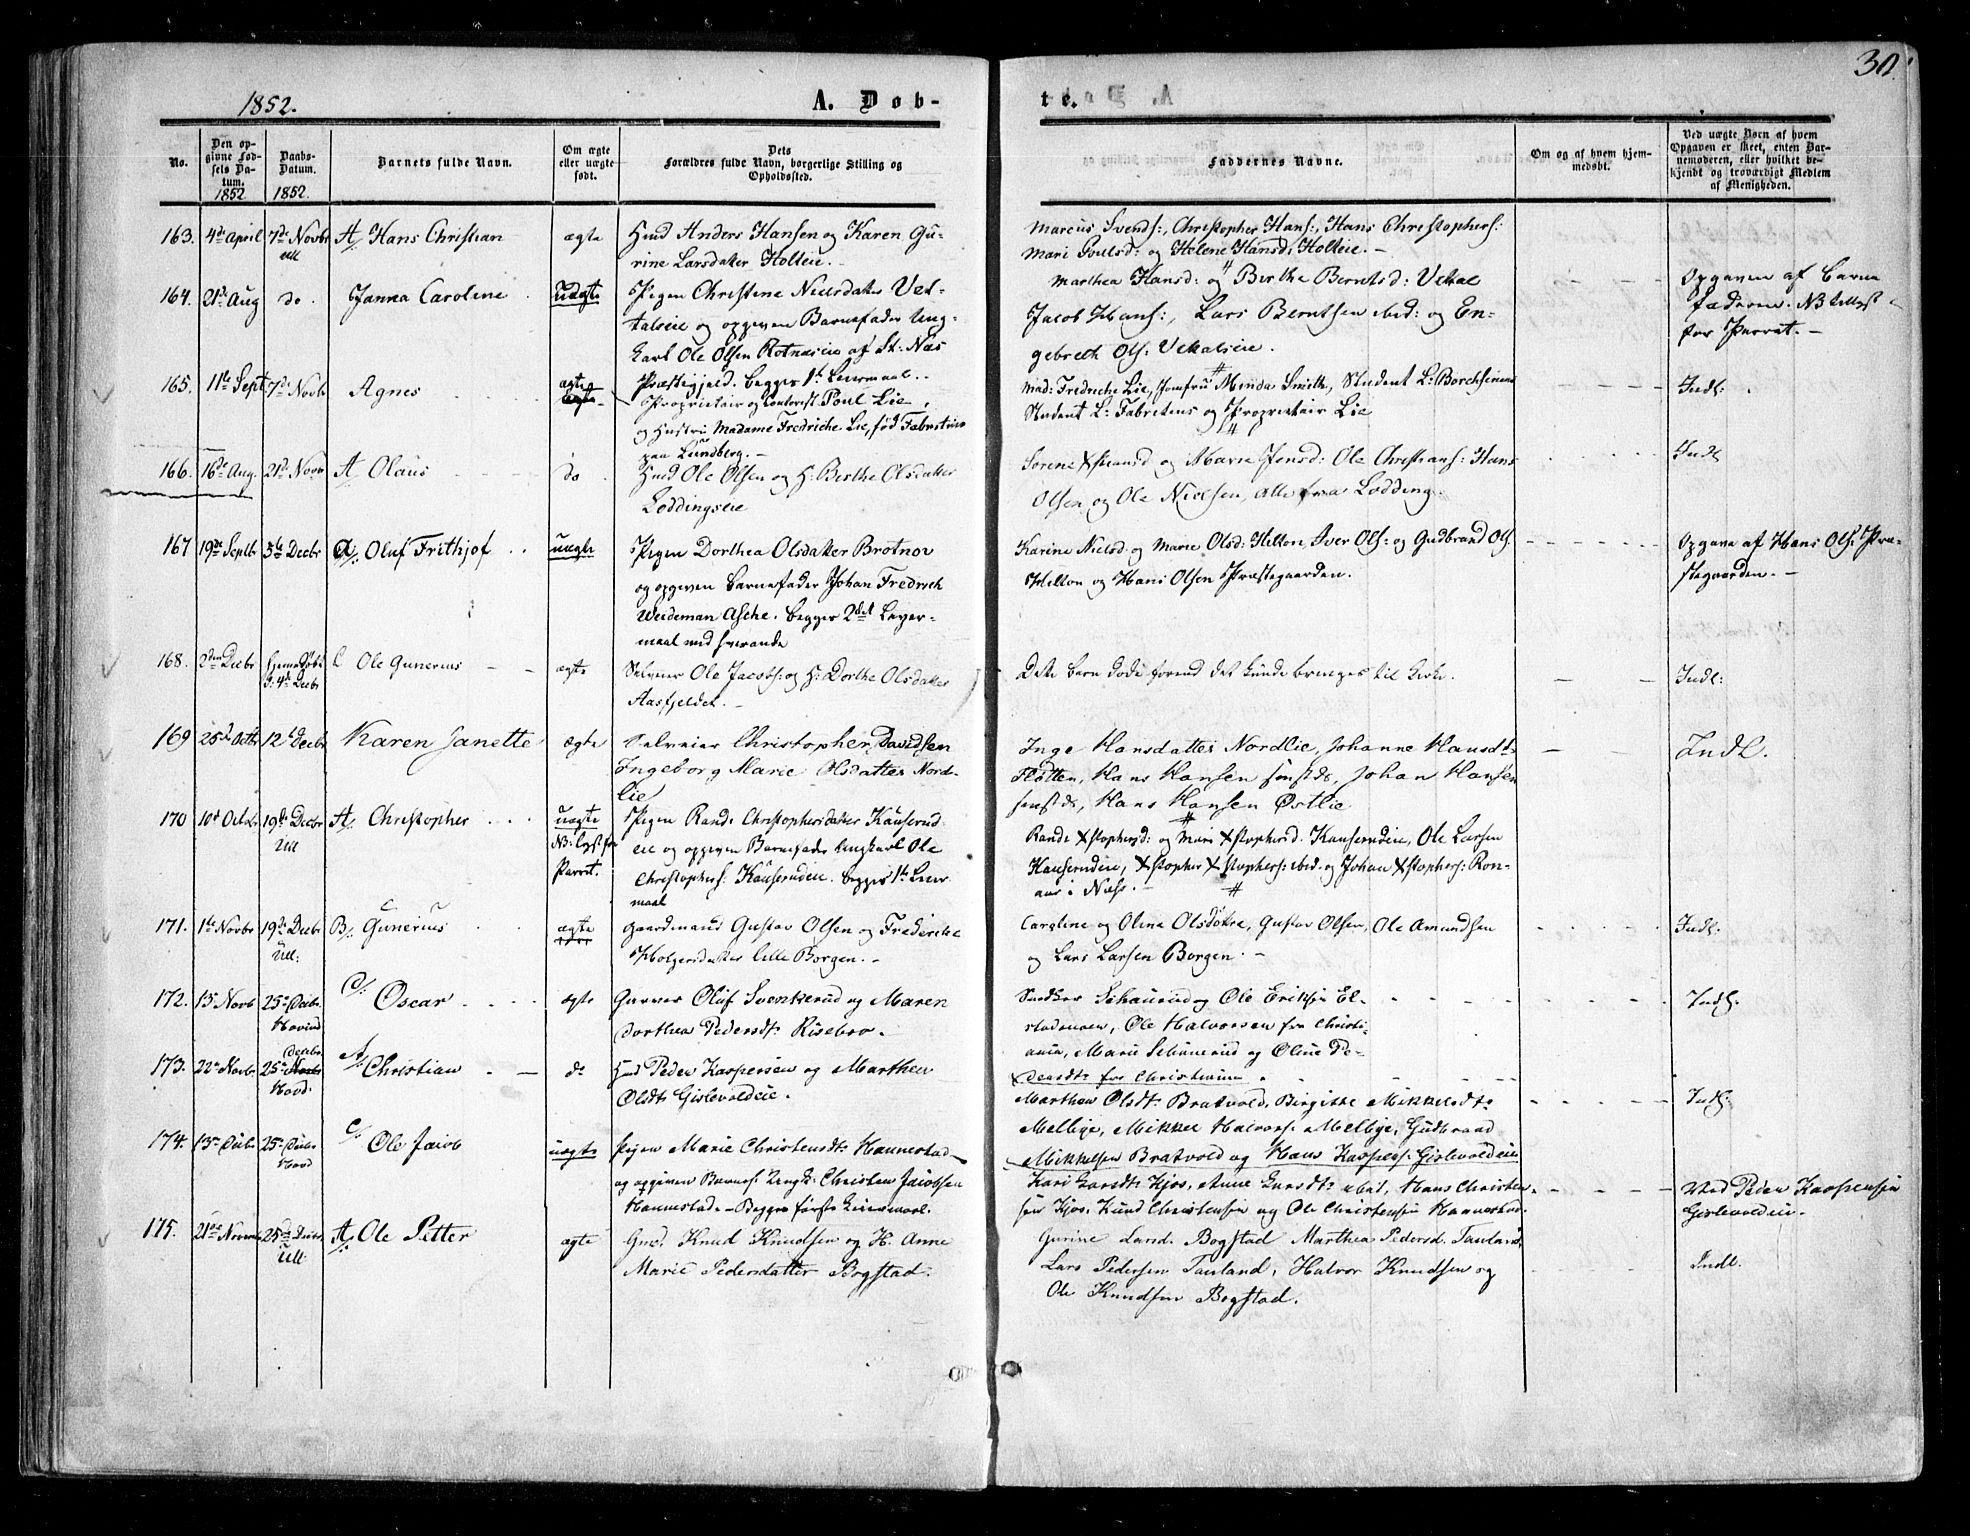 1852.
A. Døb-
te.
30.
No.
Den op-
givne Fød-
sels Da-
tum.
1852
Daabs-
Datum.
1852.
Barnets fulde Navn.
Om ægte
eller uægte
født.
Dets
Forældres fulde Navn, borgerlige Stilling og
Opholdssted.
Faddernes Navne.
Om og af hvem hjem-
medøbt.
Ved uægte Børn af hvem
Opgaven er skeet, enten Bar-
nemoderen, eller hvilket be-
kjendt og troværdigt Medlem
af Menigheden.
163. 4de April 7de Novbr Ull A/ Hans Christian ægte Huusmd Anders Hansen og Karen Gu-
rine Larsdatter Holteie.
Marcus Svends:, Christopher Hans:, Hans Christophers:
Mari Poulsd: og Helene Hansd: Holteie. -
164. 21de Aug do. Janna Caroline uægte Pigen Christine Nielsdatter Vek-
talseie og opgiven Barnefader Ung-
karl Ole Olsen Rotnæseie af St: Næs
Præstegjeld. begges 1ste Leiermaal.
Marthea Hansd: og Birthe Berntsd: Vekal
Jacob Hans:, Lars Berntsen ibid: og En-
gebreth Ols: Vekalseie.
Opgaven af Barne
faderen. NB tillyst
for Parret. -
165. 11te Septr 7de Novbr Agnes ægte Proprietair og Contorist Poul Lie,
og Hustru Madame Fredriche Lie, født Fabritius
paa Lundberg. -
Mad: Fredriche Lie, Jomfru Minda Smith, Student L: Borchsenius
Student L: Fabritius og Proprietair Lie
Indl:
166. 16de Aug. 21de Novb A/ Olaus do Huusmd Ole Olsen og H. Berthe Olsdatter
Loddingseie
Sorene Hansd og Marie Jensd: Ole Christians: Hans
Olsen og Ole Nielsen, alle fra Lodding.
Indl
167 19de Septbr 5te Decbr A/: Oluf Frithjof uægte Pigen Dorthea Olsdatter Brotnov
og opgiven Barnefader Johan Fredrich
Weideman Asche. begges 2det Leier-
maal med hverandre
Karine Nielsd: og Marie Olsd: Hellon, Iver Ols: og Gudbrand Ols
Hellon og Hans Olsen Præstegaarden.
Opgave af Hans Ols: Præ-
stegaarden. -
168. 2den Decbr Hjemmedøbt d. 4de Decbr C Ole Gunerius ægte Selveier Ole Jacobs: og H: Dorthe Olsdatter
Aasfjeldet.
Dette barn døde forend det kunde bringes til Kirke.
Indl:
169 25de Octb 12te Decbr Karen Janette ægte Selveier Christopher Davidsen
Ingeborg Marie Olsdatter Nord-
lie
Inge Hansdatter Nordlie, Johanne Hansdt
Fløtten, Hans Hansen sønstde, Johan Hansen
sønstde, Hans Hansen Østlie
Indl.
170 10d Octobr 19de Decbr Ull A/: Christopher uægte NB: lyst for Parret. Pigen Randi Christophersdatter Kauserud-
eie og opgiven Barnefader Ungkarl Ole
Christophers: Kauserudeie. begges 1ste Leier
maal
Randi Xstophersd: og Mari Xstophersd. Kauserudeie, Ole Larsen
Kauserudeie, Xstopher Xstophers: ibid. og Johan Xstophers: Ron-
aas i Næss. -
171. 1ste Novbr 19de Decbr Ull: B/: Gunerius ægte Gaardmand Gustav Olsen og Frederiche
Holgersdatter lille Borgen. -
Caroline og Olina Olsdøtre, Gustav Olsen, Ole Amundsen
og Lars Larsen Borgen. -
Indl:
172. 15 Novb 25de Decbr. Hovind C/: Oscar ægte Garver Oluf Svenkerud og Maren
Dorthea Pedersdt: Risebro.
Snedker Schauerud og Ole Eriksen El-
stadmoen, Ole Halvorsen fra Christi-
ania, Marie Schinnerud og Oline Pe-
dersdt: fra Christiania
Indl.
173. 22de Novbr. 25de Decbr Hovd. A/: Christian do Huusmd Peder Kaspersen og Marthea
Olsdt: Gislevoldeie.
Marthea Olsdt: Bratvold, Birgitte Mikkelsdt:
Melbye, Mikkel Halvors: Melbye, Gudbrand
Mikkelsen Bratvold og Hans Kaspers: Gislevoldeie
Indl:
174. 13de Decbr. 25de Decbr Hovd C/: Ole Jacob uægte Pigen Marie Christensdt: Hannestad
og opgiven Barnef: Ungk: Christen Jacobsen
Hannestad. - Begges første Leiermaal.
Kari Larsdt: Kjos, Anne Larsdt: ibid, Hans Christen-
sen Kjos, Knud Christensen og Ole Christensen Hannestad.
Ved Peder Kaspersen
Gislevoldeie.
175. 21de Novembr 25de Decbr Ull: A/: Ole Petter ægte Gmd. Knud Knudsen og H. Anne
Marie Pedersdatter Bogstad.
Gurine Larsd. Bogstad Marthea Pedersd. Tauland,
Lars Pedersen Tauland, Halvor Knudsen og
Ole Knudsen Bogstad.
Indl.